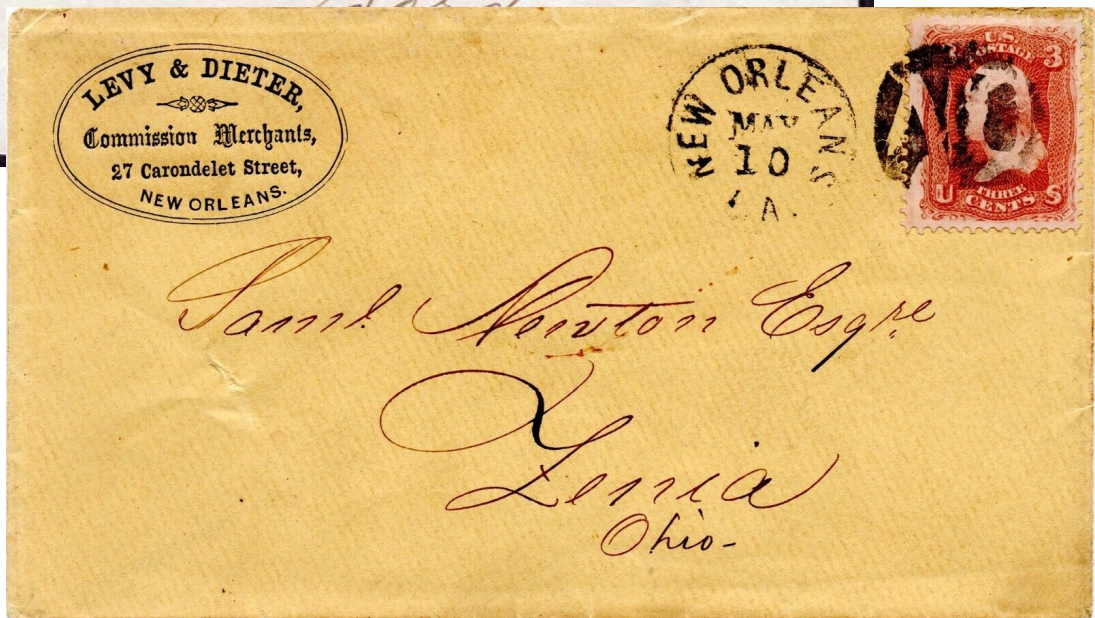 LEVY & DIETER,
Commission Merchants,
27 Carondelet Street,
NEW ORLEANS.
NEW ORLEANS
MAY
10
LA.
U.S.
POSTAGE
3
THREE
CENTS
U S
Saml. Newton Esqre
Xenia
Ohio-